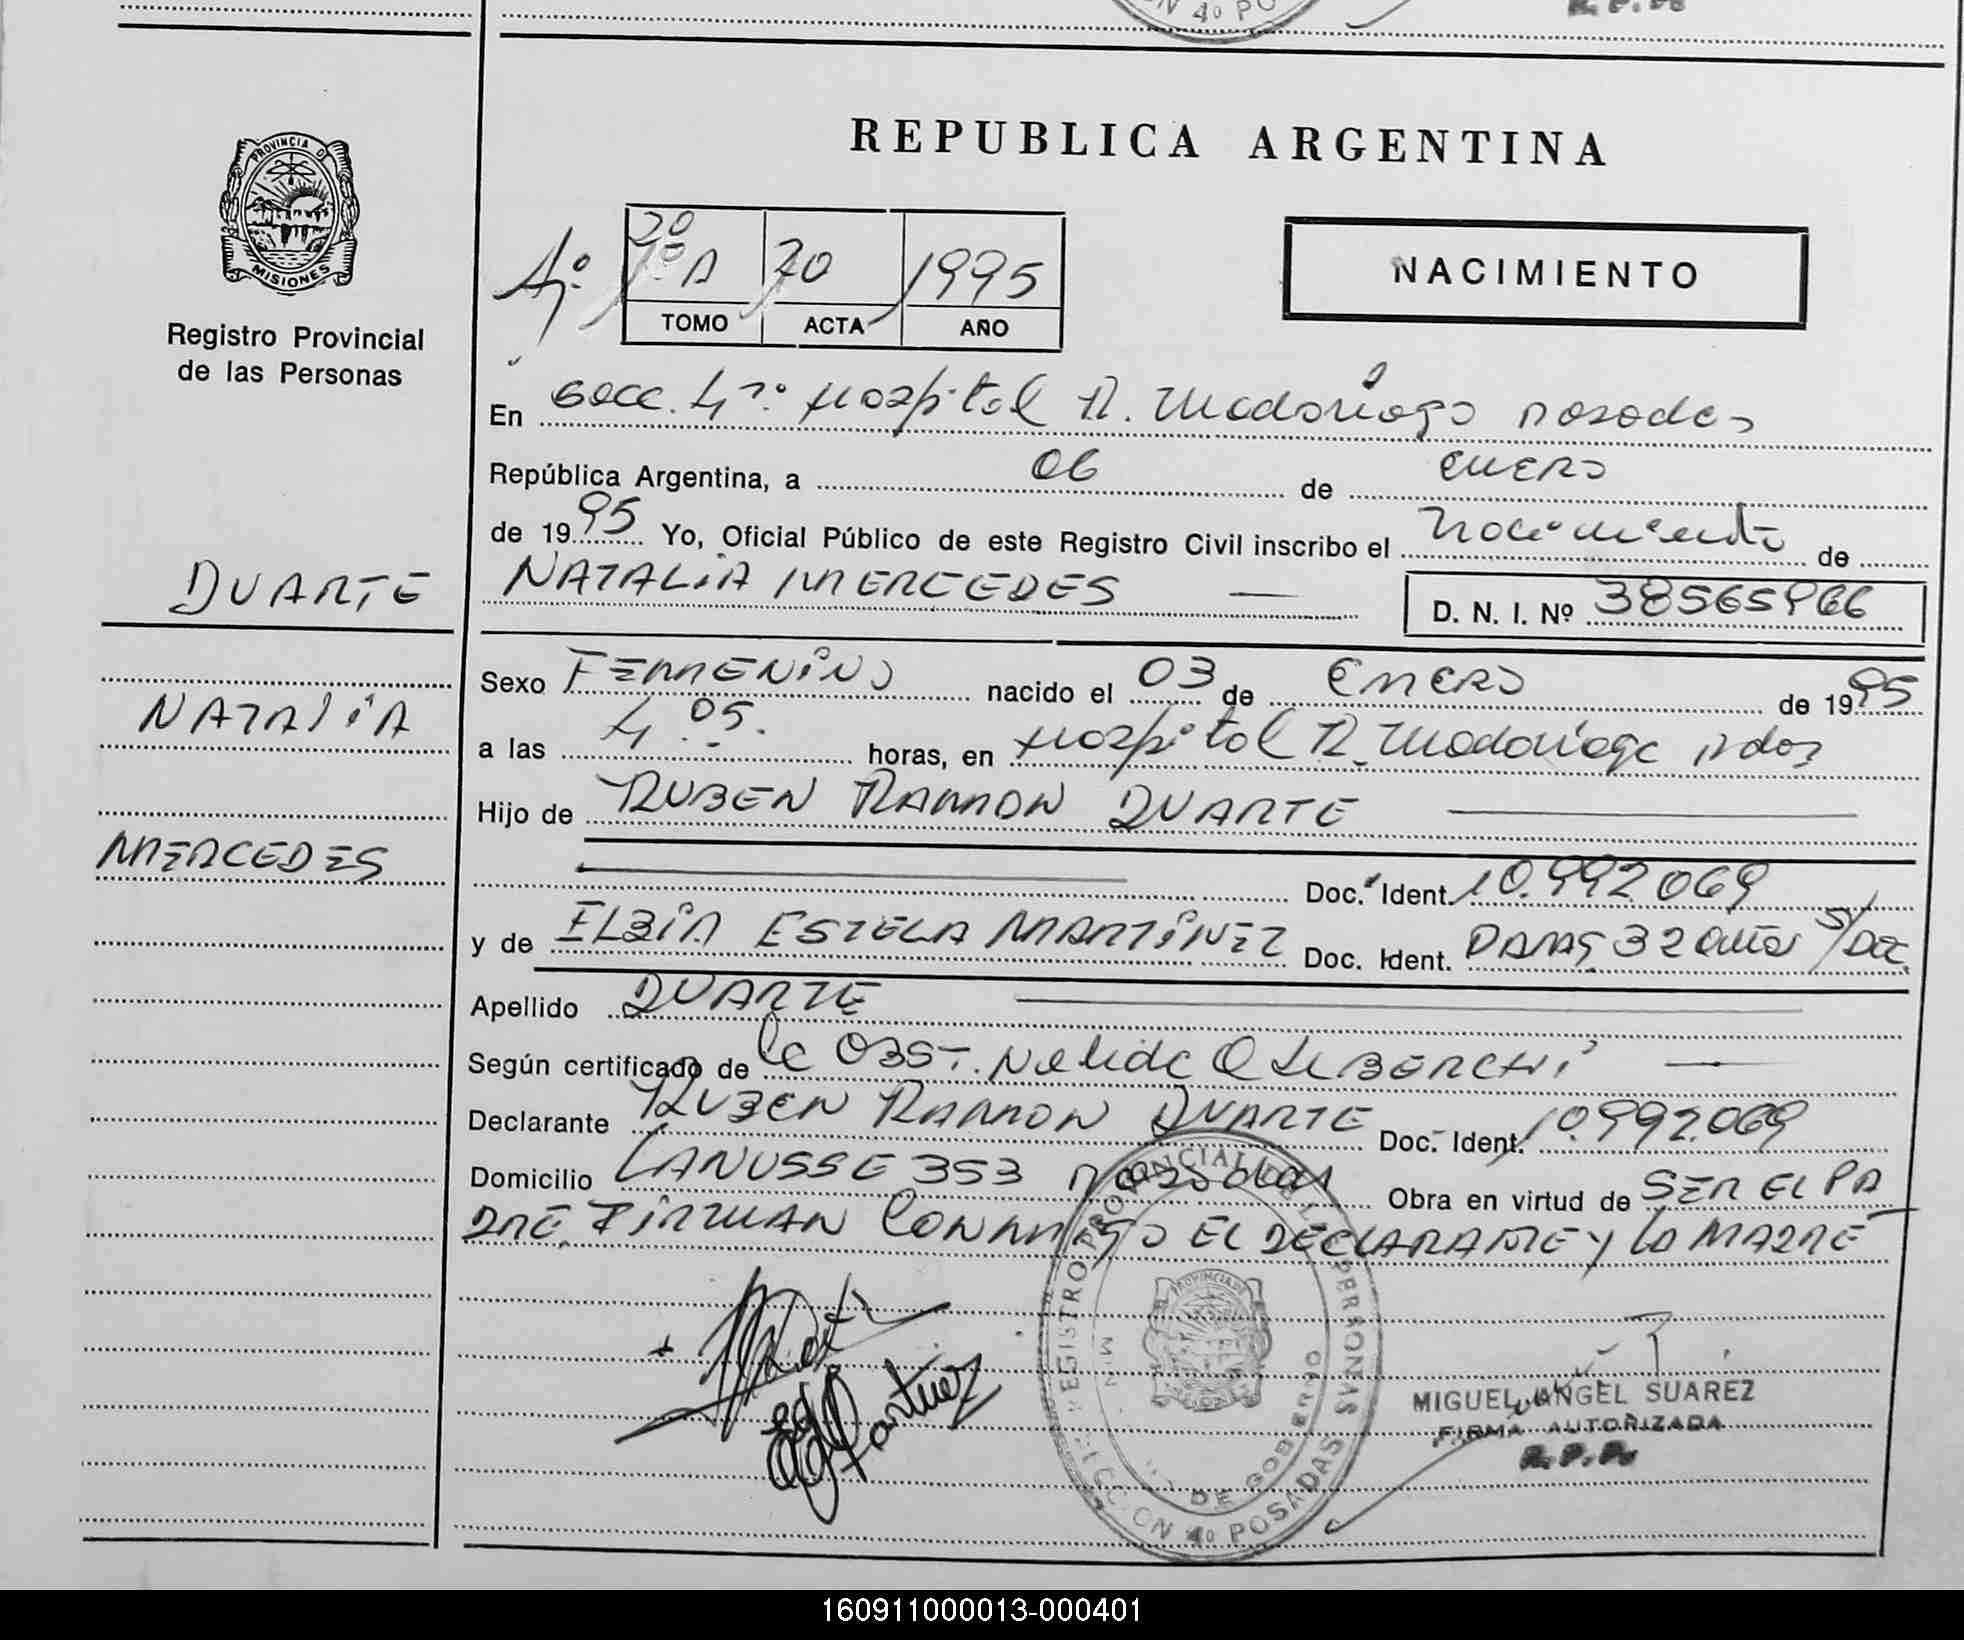 REPUBLICA ARGENTINA
PROVINCIA D
MISIONES
Registro Provincial
de las Personas
4º 2º A 70 1995
TOMO ACTA AÑO
NACIMIENTO
En Secc. 4ª. Hospital R. Madariaga Posadas
República Argentina, a 06 de enero
de 1995 Yo, Oficial Público de este Registro Civil inscribo el nacimiento de
DUARTE
NATALIA MERCEDES D. N. I. Nº 38565966
NATALIA
MERCEDES
Sexo FEMENINO nacido el 03 de Enero de 1995
a las 4.05. horas, en Hospital R. Madariaga Pdas
Hijo de RUBEN RAMON DUARTE
Doc. Ident. 10.992069
y de ELBIA ESTELA MARTINEZ Doc. Ident. 32 años S/Doc.
Apellido DUARTE
Según certificado de la OBST. Nelida
Declarante RUBEN RAMON DUARTE Doc. Ident. 10.992.069
Domicilio LANUSSE 353 Posadas Obra en virtud de SER EL PA
DRE. FIRMAN CONMIGO EL DECLARANTE Y LA MADRE
REGISTRO PROVINCIAL DE LAS PERSONAS
DE GOBIERNO
SECCION 4º POSADAS
MIGUEL ANGEL SUAREZ
FIRMA AUTORIZADA
R. P. P.
160911000013-000401